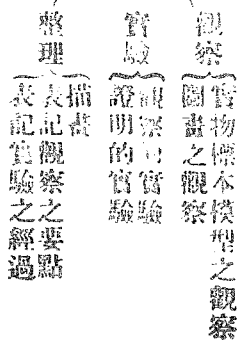 觀察
實物標本模型之觀察
圖畫之觀察
實驗
觀察的實驗
證明的實驗
整理
描畫
表記觀察之要點
表記實驗之經過